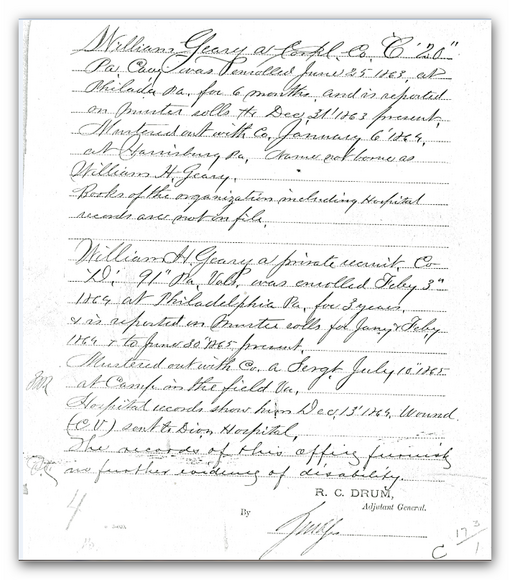 William Geary a Corpl. Co. C "20"
Pa Cavy was enrolled June 25 1863, at
Philada Pa. for 6 months and is reported
on muster rolls to Dec. 31" 1863 present.
Mustered out with Co. January 6" 1864,
at Harrisburg Pa, Name not borne as
William H. Geary.
Books of the organization including Hospital
records are not on file.
William H. Geary a private recruit, Co
"D", 91" Pa Vols, was enrolled Feby 3"
1864 at Philadelphia Pa, for 3 years,
& is reported on muster rolls for Jany & Feby
1864 & to June 30" 1865 present.
Mustered out with Co. a Sergt July 10" 1865
at Camp in the field Va.
Hospital records show him Dec. 13" 1864, Wound
(C.V.) sent to Divn Hospital,
The records of this office furnish
no further evidence of disability.
R. C. DRUM,
Adjutant General.
By
4
C 17 3/1